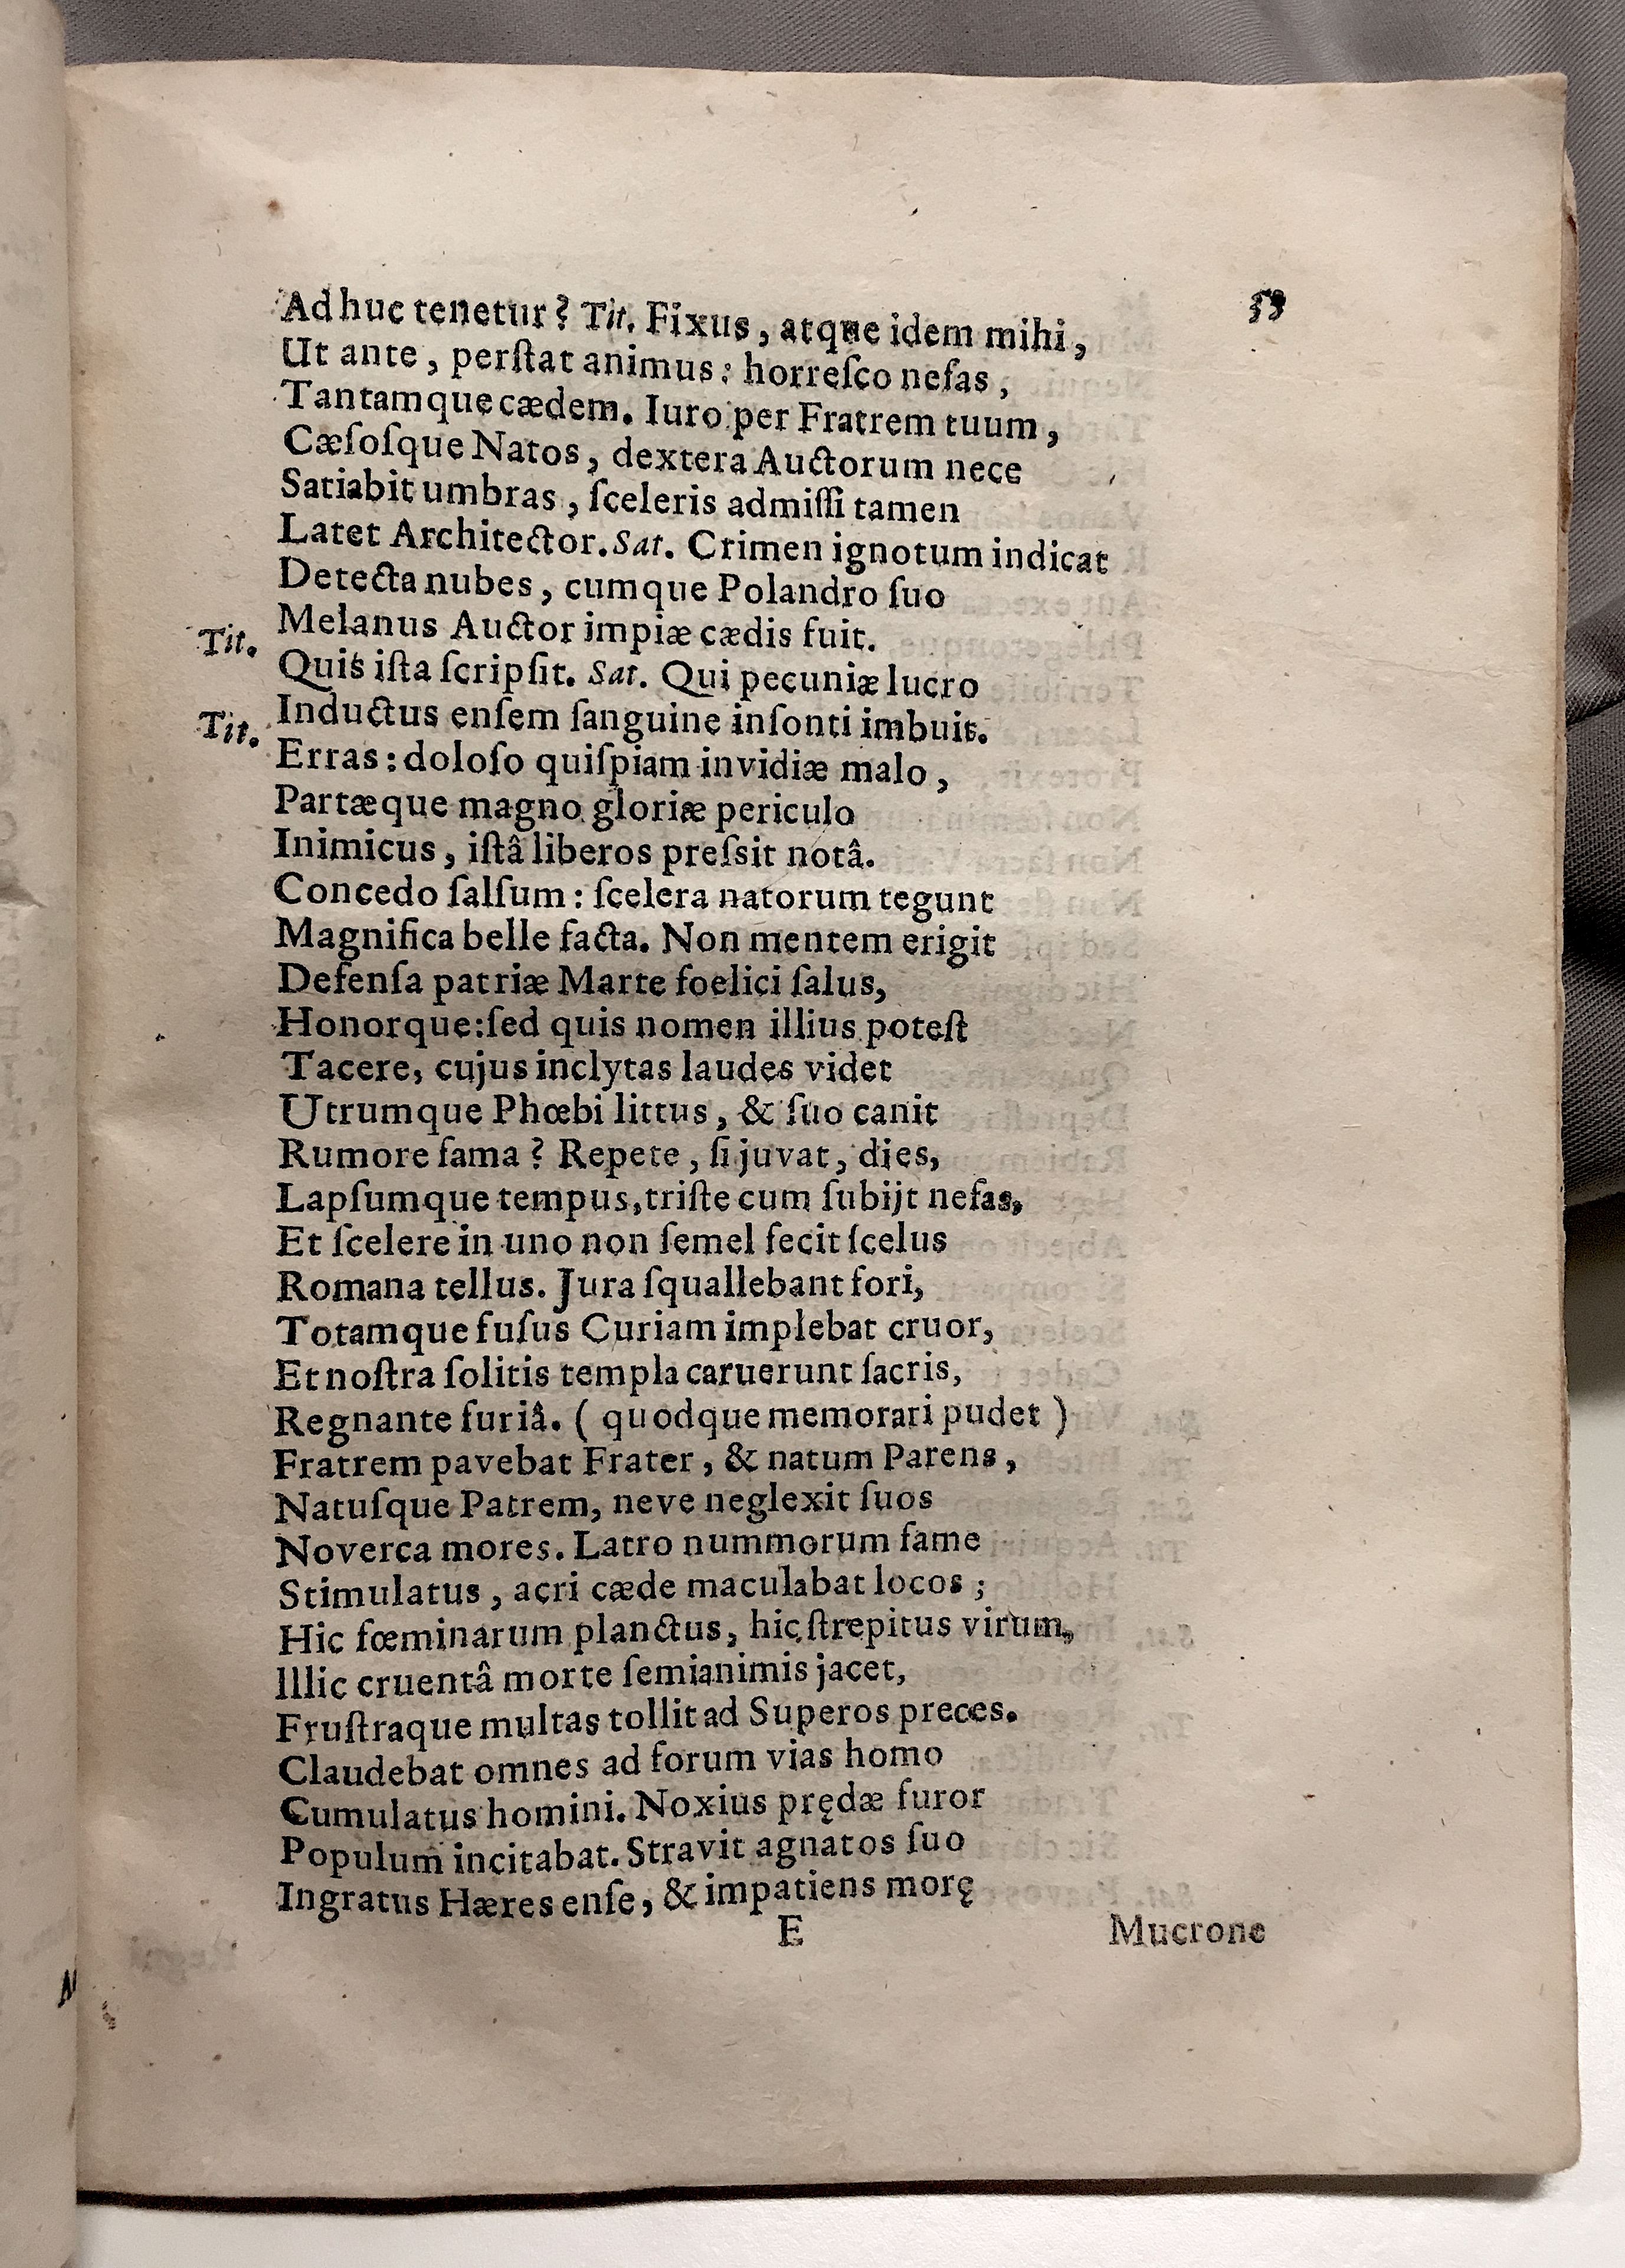 59
Adhuc tenetur? Tit. Fixus, atque idem mihi,
Ut ante, perſtat animus: horreſco nefas,
Tantamque cædem. Iuro per Fratrem tuum,
Cæſoſque Natos, dextera Auctorum nece
Satiabit umbras, ſceleris admiſſi tamen
Latet Architector. Sat. Crimen ignotum indicat
Detecta nubes, cumque Polandro ſuo
Melanus Auctor impiæ cædis fuit.
Tit. Quis iſta ſcripſit. Sat. Qui pecuniæ lucro
Inductus enſem ſanguine inſonti imbuit.
Tit. Erras: doloſo quiſpiam invidiæ malo,
Partæque magno gloriæ periculo
Inimicus, iſtâ liberos preſsit notâ.
Concedo falſum: ſcelera natorum tegunt
Magnifica belle facta. Non mentem erigit
Defenſa patriæ Marte foelici ſalus,
Honorque: ſed quis nomen illius poteſt
Tacere, cujus inclytas laudes videt
Utrumque Phœbi littus, & ſuo canit
Rumore fama? Repete, ſi juvat, dies,
Lapſumque tempus, triſte cum ſubijt nefas,
Et ſcelere in uno non ſemel fecit ſcelus
Romana tellus. Jura ſquallebant fori,
Totamque fuſus Curiam implebat cruor,
Et noſtra ſolitis templa caruerunt ſacris,
Regnante furiâ. ( quodque memorari pudet )
Fratrem pavebat Frater, & natum Parens,
Natuſque Patrem, neve neglexit ſuos
Noverca mores. Latro nummorum fame
Stimulatus, acri cæde maculabat locos;
Hic fœminarum planctus, hic ſtrepitus virum,
Illic cruentâ morte ſemianimis jacet,
Fruſtraque multas tollit ad Superos preces.
Claudebat omnes ad forum vias homo
Cumulatus homini. Noxius prędæ furor
Populum incitabat. Stravit agnatos ſuo
Ingratus Hæres enſe, & impatiens morę
E Mucrone